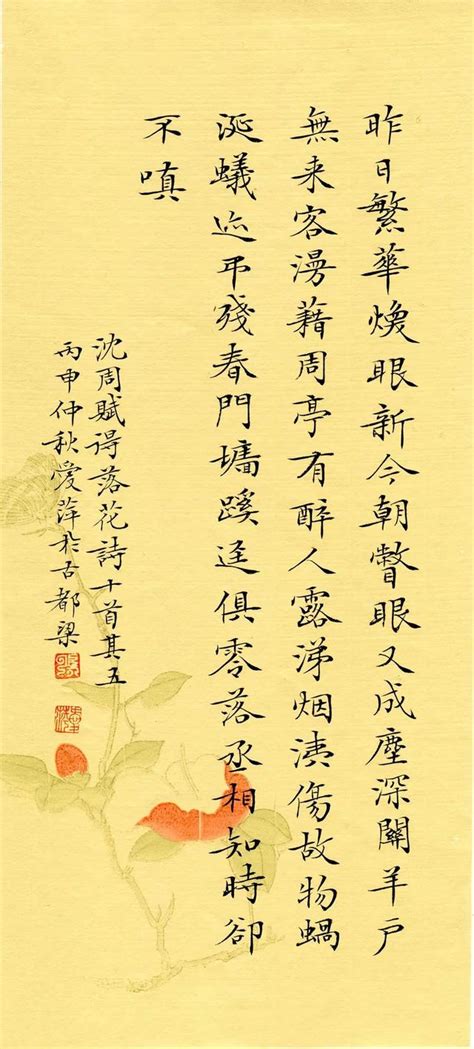 昨日繁華煥眼新今朝瞥眼又成塵深關羊戶
無来客漫藉周亭有醉人露涕烟洟傷故物蝸
涎蟻迹弔殘春門墻蹊逕俱零落丞相知時卻
不嗔
沈周賦得落花詩十首其五
丙申仲秋愛萍於古都梁